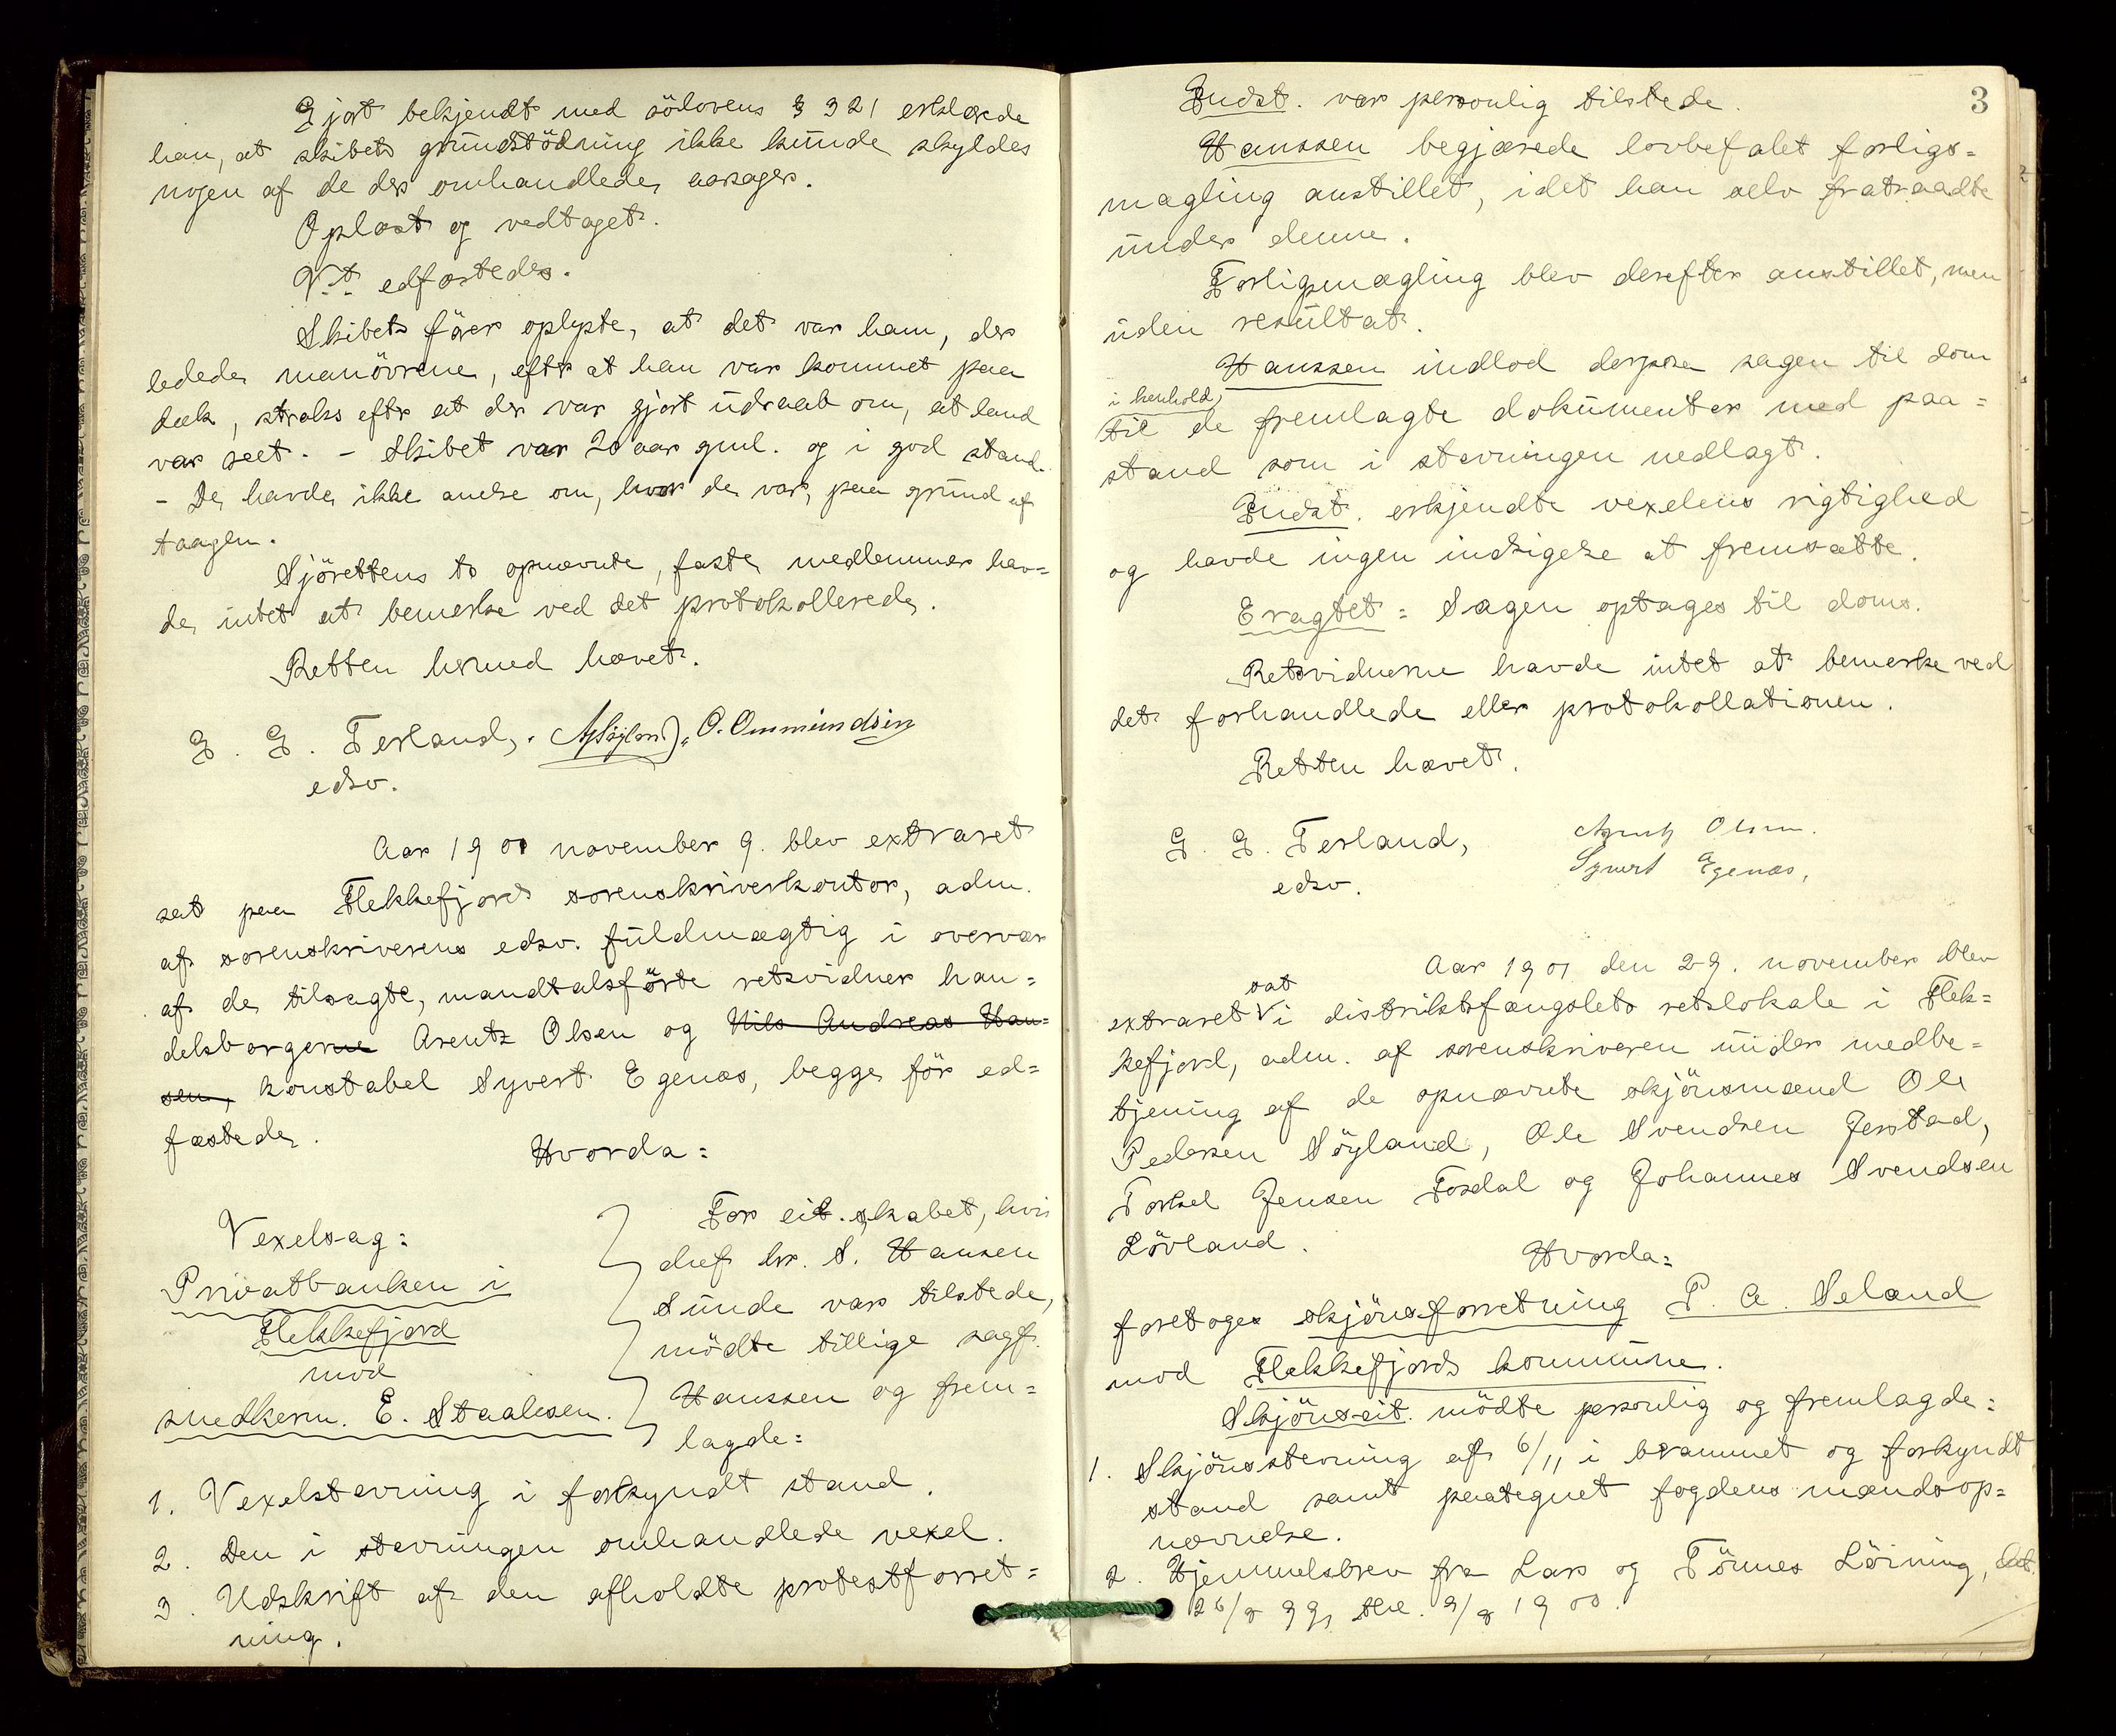 Gjort bekjendt med sölovens § 321 erklærede
han, at skibets grundstödning ikke kunde skyldes
nogen af de der omhandlede aarsager.
Oplæst og vedtaget.
Vt. edfæstedes.
Skibets förer oplyste, at det var ham, der
ledede manövrene, efter at han var kommet paa
dæk, straks efter at der var gjort udraab om, at land
var seet. - Skibet var 20 aar gml. og i god stand.
- De havde ikke anelse om, hvor de var, paa grund af
taagen.
Sjörettens to opnævnte, faste medlemmer hav=
de intet at bemerke ved det protokollerede.
Retten hermed hævet.
G. G. Terland, O. Ommundsen
edsv.
Aar 1901 november 9. blev extraret
sat paa Flekkefjords sorenskriverkontor, adm.
af sorenskriverens edsv. fuldmægtig i overvær
af de tilsagte, mandtalsförte retsvidner han=
delsborgerne Arentz Olsen og Nils Andreas Han=
sen, konstabel Syvert Egenæs, begge för ed=
fæstede.
Hvorda:
Vexelsag:
Privatbanken i
Flekkefjord
mod
snedkerm. E. Staalesen.
For cit.skabet, hvis
chef hr. S. Hansen
Sunde var tilstede,
mödte tillige sagf.
Hanssen og frem=
lagde:
1. Vexelstevning i forkyndt stand.
2. Den i stevningen omhandlede vexel.
3. Udskrift af den afholdte protestforret=
ning.
3
Indst. var personlig tilstede.
Hanssen begjærede lovbefalet forligs=
mægling anstillet, idet han selv fratraadte
under denne.
Forligsmægling blev derefter anstillet, men
uden resultat.
Hanssen indlod derpaa sagen til dom
i henhold
til de fremlagte dokumenter med paa=
stand som i stevningen nedlagt.
Indst. erkjendte vexelens rigtighed
og havde ingen indsigelse at fremsætte.
Eragtet: Sagen optages til doms.
Retsvidnerne havde intet at bemerke ved
det forhandlede eller protokollationen.
Retten hævet.
G. G. Terland,
edsv.
Arentz Olsen.
Syvert Egenæs,
Aar 1901 den 29. november blev
sat
extraret i distriktsfængslets retslokale i Flek=
kefjord, adm. af sorenskriveren under medbe=
tjening af de opnævnte skjönsmænd Ole
Pedersen Söyland, Ole Svendsen Jerstad,
Torkel Jensen Fosdal og Johannes Svendsen
Lövland.
Hvorda:
foretoges skjönsforretning P. A. Seland
mod Flekkefjords kommune.
Skjönscit. mödte personlig og fremlagde:
1. Skjönsstevning af 6/11 i berammet og forkyndt
stand samt paategnet fogdens mændsop=
nævnelse.
2. Hjemmelsbrev fra Lars og Tönnes Löining, dat.
26/8 99, thl. 9/8 1900.